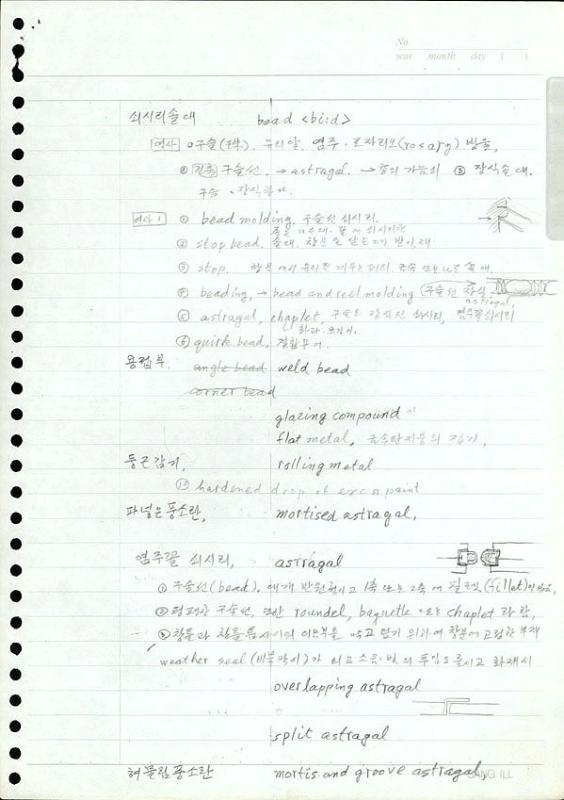 No.
year month day ( )
쇠시리솔대 bead <bi:d>
구슬 유리알, 염주·로자리오(rosary) 방울,
구슬선, → astragal. ③ 장식솔대.
구슬 장식
① bead molding. 구슬선 쇠시리.
② stop bead.
③ stop.
beading, → bead and reel molding (구슬선 장식
astragal,
⑤ astragal, chaplet, 구슬로 장식된 쇠시리, 염주꼴쇠시리
⑥ quirk bead,
용접부. angle bead weld bead
corner bead
glazing compound
flat metal,
둥근감기, rolling metal
⑩ hardened drop of excess paint
파넣은풍소란, mortised astragal,
염주꼴 쇠시리, astragal
① 구슬선(bead). 대개 반원형이고 1측 또는 2측에 필렛(fillet)이
② 편편한 구슬선, roundel, baguette 또는 chaplet 라 함,
③ 창문과 창틀 사이의 위하여 창문에 고정한 부재
weather seal (비물막이)가 되고 소음·빛의 투입도 줄이고 화재시
overlapping astragal
split astragal
혀물림풍소란 mortis and groove astragal,